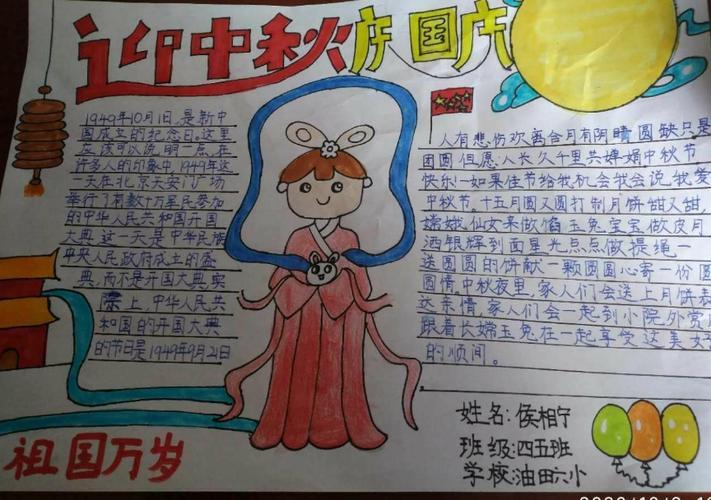 迎中秋庆国庆
1949年10月1日,是新中
国成立的纪念日。这里
应该可以说明一点,在
许多人的印象中,1949年这
一天在北京天安门广场
举行了有数十万军民参加
的中华人民共和国开国
大典 这一天是中华民族
中央人民政府成立的盛
典,而不是开国大典,实
际上 中华人民共
和国的开国大典
的节日是1949年9月21日
人有悲伤欢离合月有阴晴圆缺只是
团圆但愿人长久千里共婵娟中秋节
快乐!如果佳节给我机会我会说我爱
中秋节,十五月圆又圆打制月饼甜又甜,
嫦娥仙女来做馅玉兔宝宝做皮月
洒银辉到面星光点点做提绳一
送圆圆的饼献一颗圆圆心寄一份圆
圆情中秋夜里,家人们会送上月饼表
达亲情,家人们会一起到小院外赏
跟着长嫦玉兔在一起享受这美好
的顺间。
姓名:侯相宁
班级:四五班
学校:油田六小
祖国万岁